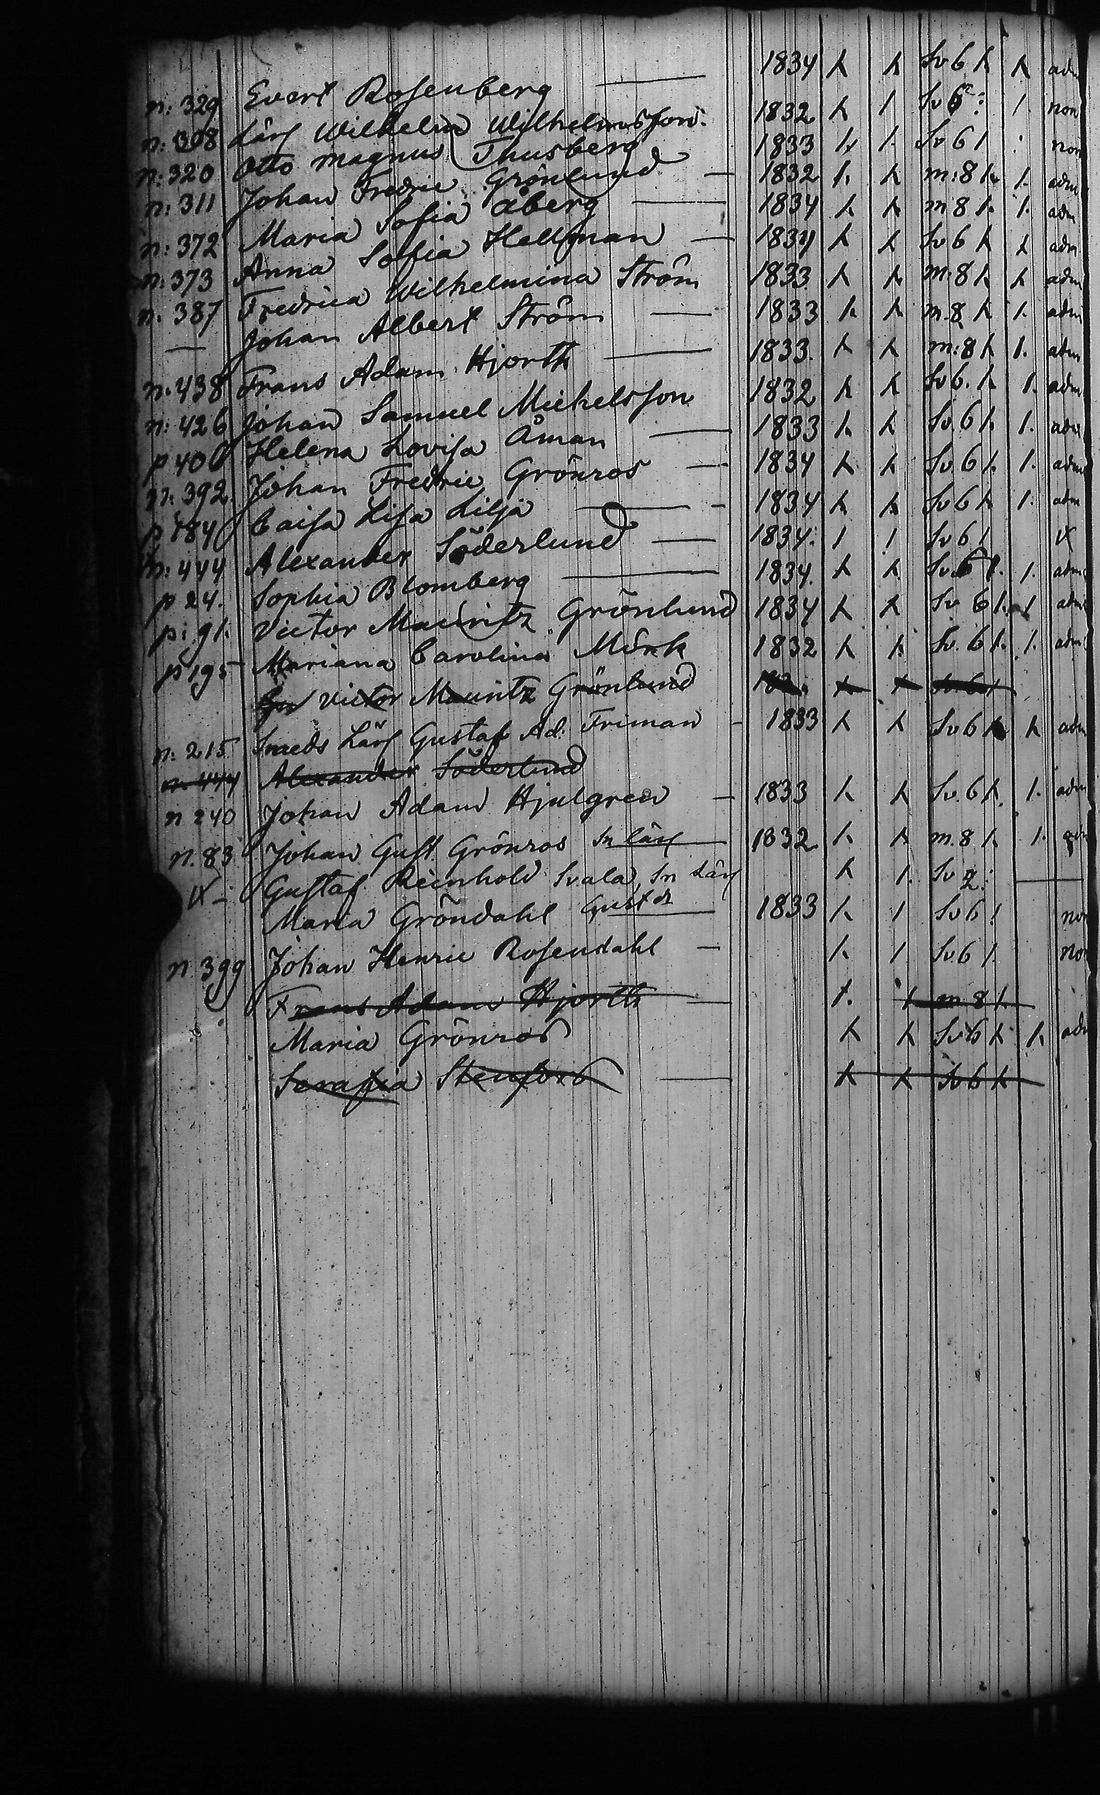 n: 329 Evert Rosenberg — 1834 Sv 6 adm
n: 308 Lärl Wilhelm Wilhelmsson. 1832 Sv 6 non
n: 320 Otto Magnus Thusberg 1833 Sv 6 non
n: 311 Johan Fredric Grönlund — 1832 m: 8 adm
n: 372 Maria Sofia Åberg — 1834 m 8 adm
n: 373 Anna Sofia Hellman — 1834 Sv 6 adm
n. 387 Fredrica Wilhelmina Ström 1833 m: 8 adm
— Johan Albert Ström — 1833 m. 8 adm
n: 438 Frans Adam Hjorth — 1833 m: 8 adm
n: 426 Johan Samuel Michelsson 1832 Sv 6. adm
p 400 Helena Lovisa Åman — 1833 Sv. 6 adm
n: 392 Johan Fredric Grönros — 1834 Sv 6 adm
p 184 Caisa Lisa Lilja — 1834 Sv 6 adm
n: 444 Alexander Söderlund — 1834. Sv 6
p 24. Sophia Blomberg — 1834. Sv. 6 adm
p: 91. Victor Mauritz Grönlund 1834 Sv 6 adm
p 195 Mariana Carolina Mörk 1832 Sv. 6 adm
Victor Mauritz Grönlund
n: 215 Smeds Lärl Gustaf Ad: Friman — 1833 Sv 6 adm
n 444 Alexander Söderlund
n 240 Johan Adam Hjulgren — 1833 Sv. 6 adm
n. 83 Johan Gust. Grönros Sn Lärl 1832 m. 8
Gustaf Reinhold Svala, Sn Lärl Sv 2:
Maria Gröndahl 1833 Sv 6 non
n. 399 Johan Henric Rosendahl — Sv 6 non
Frans Adam Hjorth — m 8
Maria Grönros Sv 6 adm
Serafia Stenfors — Sv 6